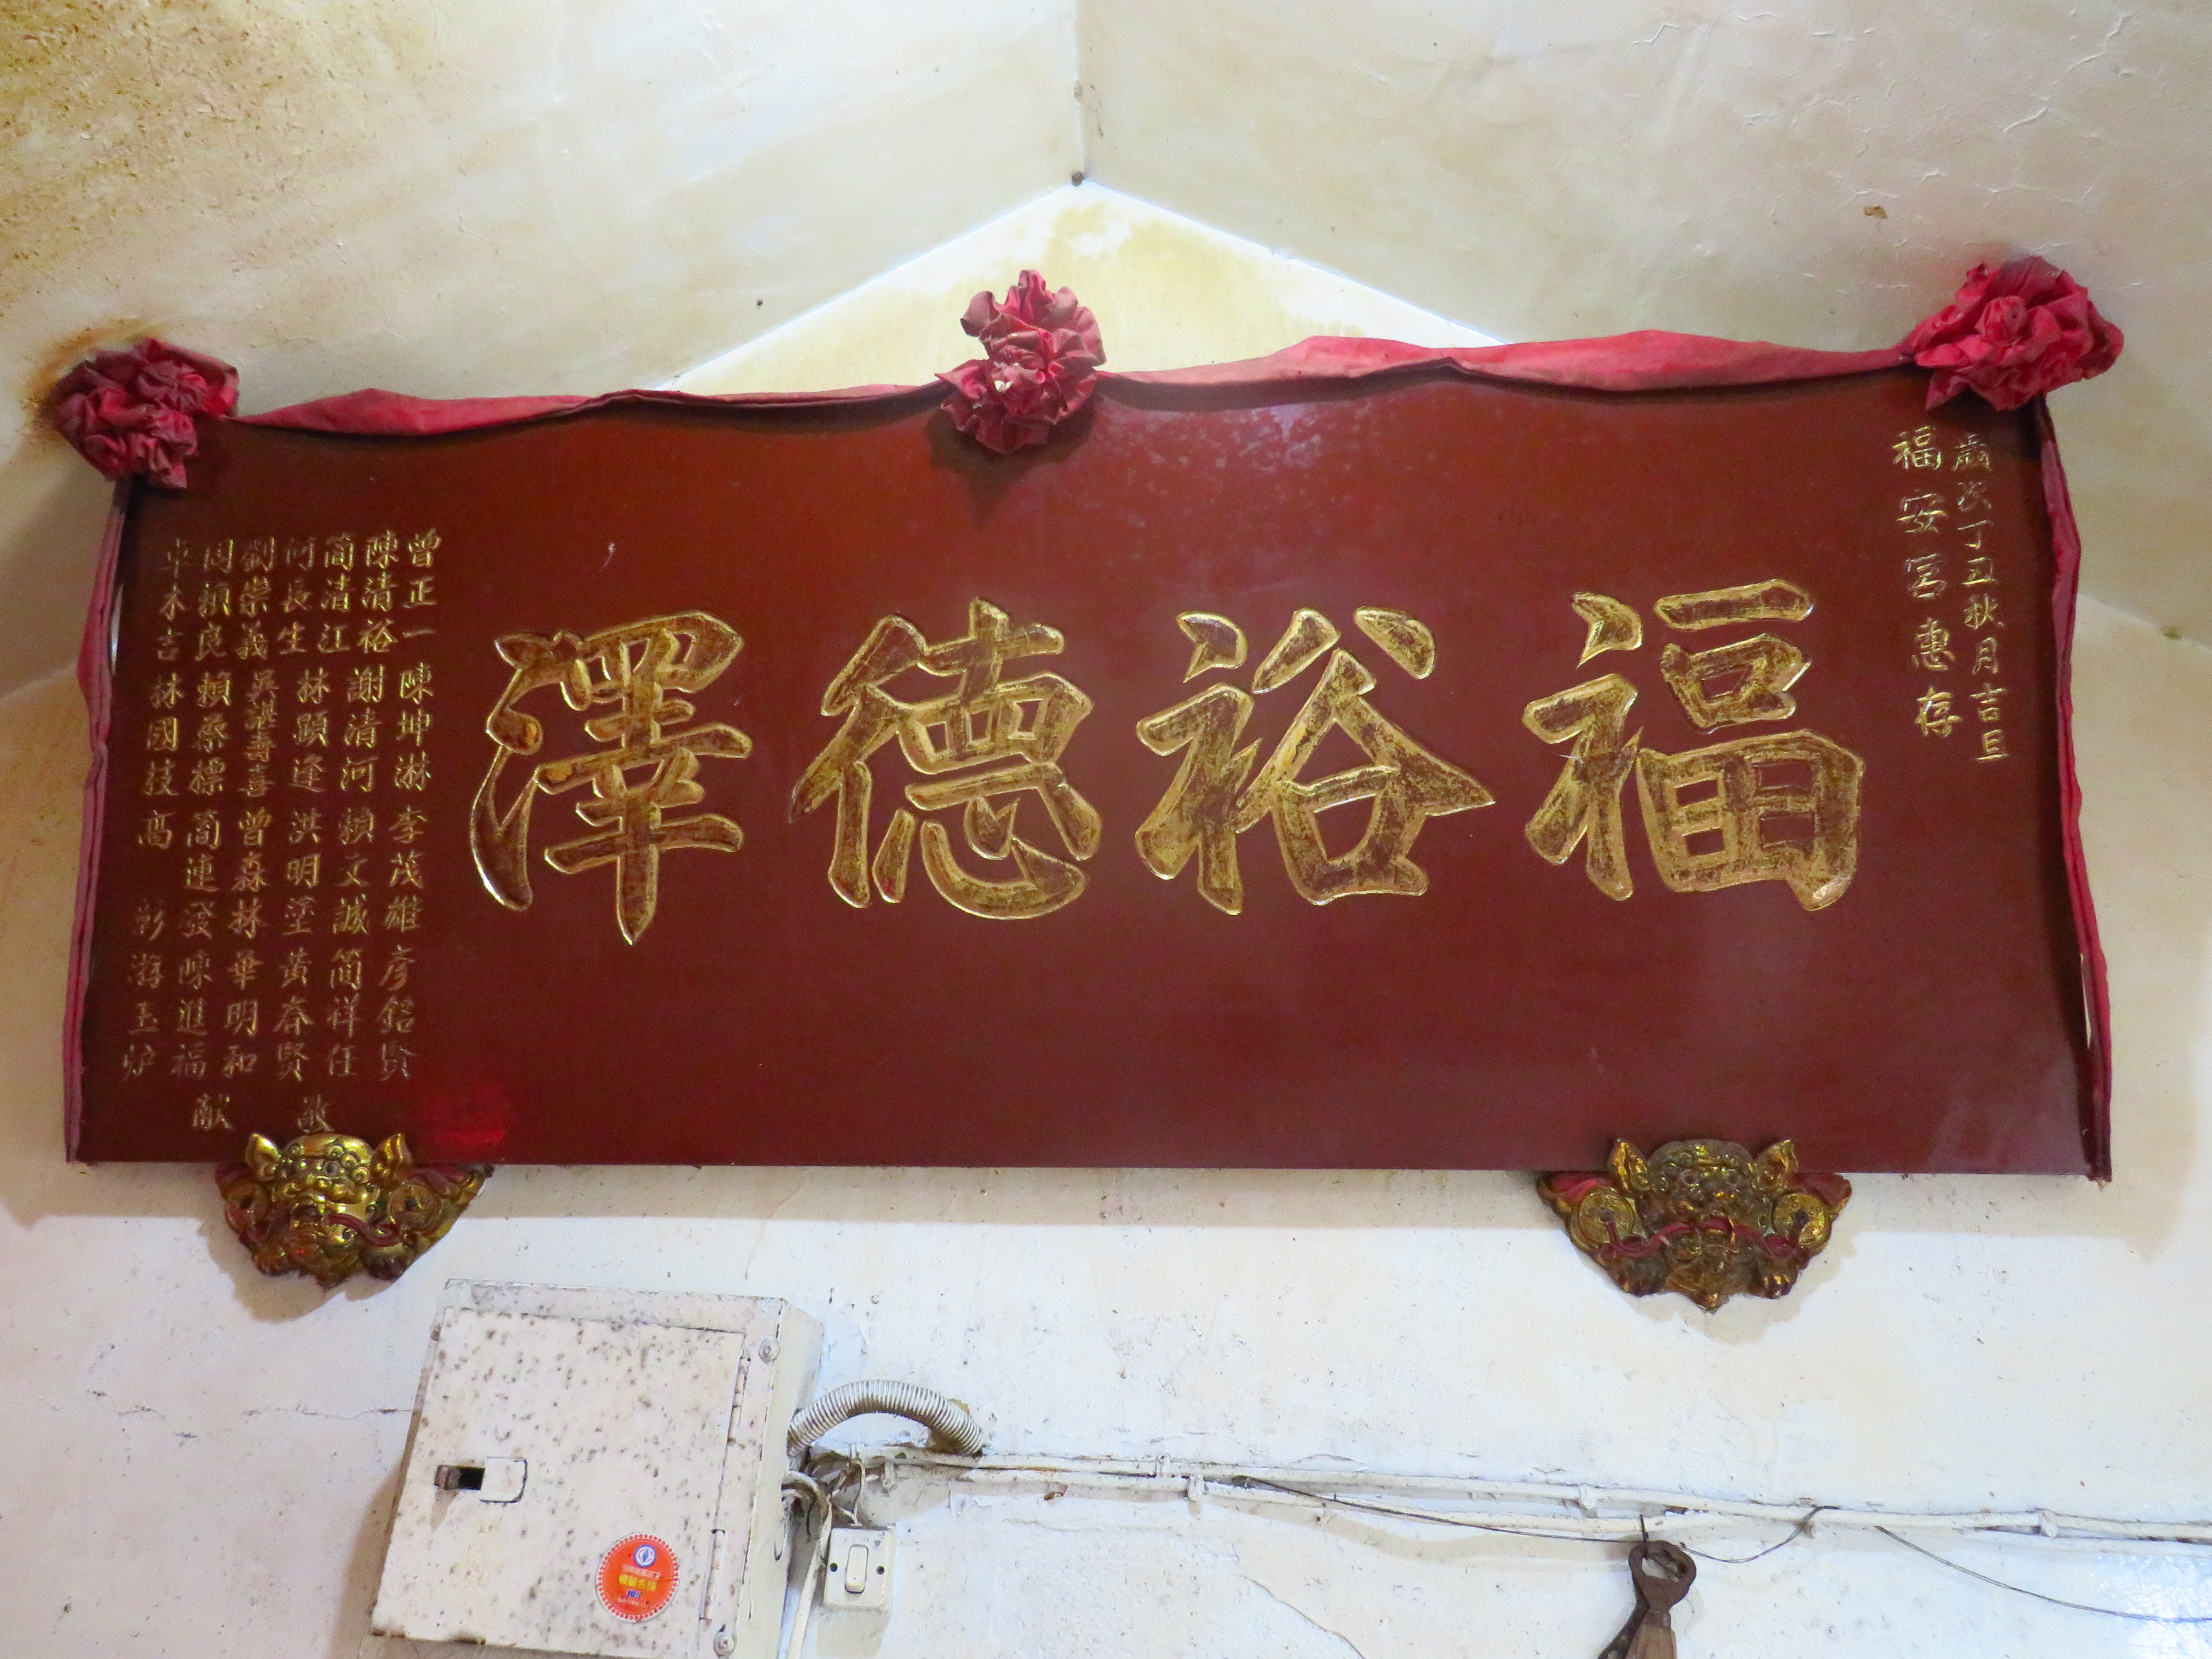 歲次丁丑秋月吉旦
福安宮惠存
福裕德澤
曾正一 陳坤淋 李茂雄 彥銘賢
陳清裕 謝清河 賴文誠 簡祥任
簡清江 林顕逢 洪明塗 黃春賢
何長生
劉崇義 吳諶壽喜 曾森林 華明和
周賴良 賴桑標 簡連發 陳進福
卓木吉 林國技 高 彰 游玉炉
敬献